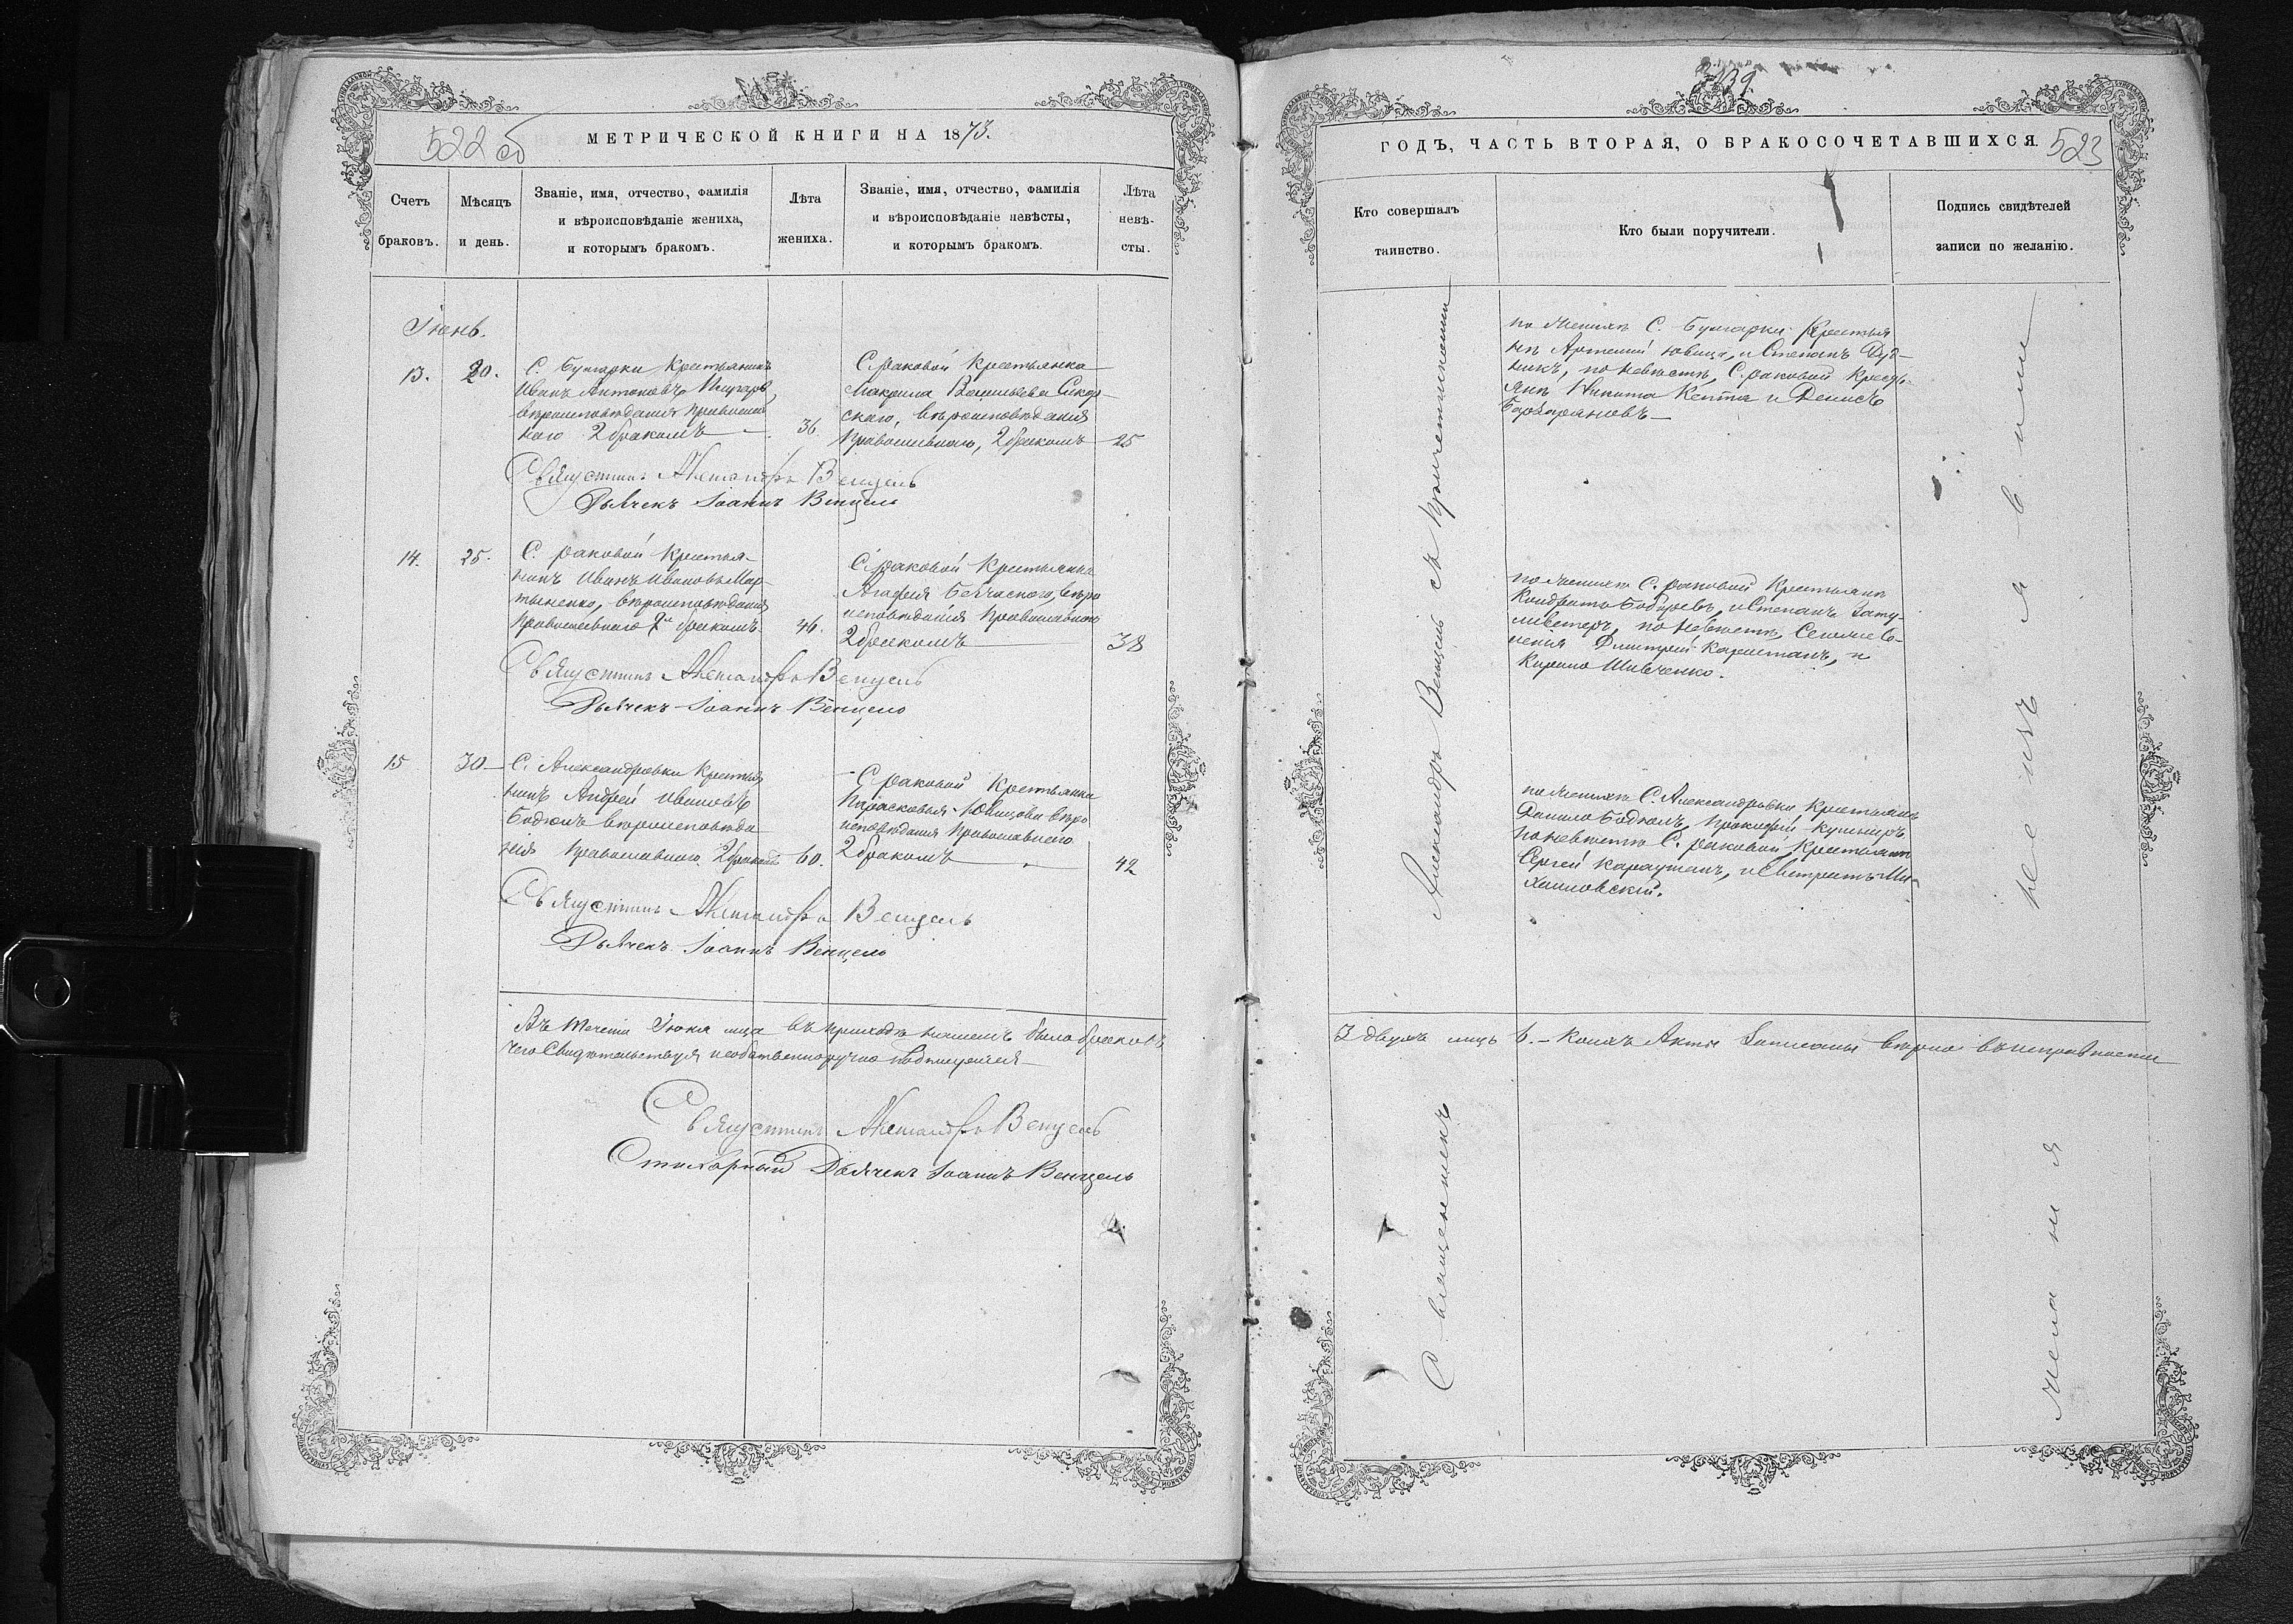 522 об
МЕТРИЧЕСКОЙ КНИГИ НА 1873.
Счетъ браковъ.
Мѣсяцъ и день.
Званіе, имя, отчество, фамилія
и вѣроисповѣданіе жениха,
и которымъ бракомъ.
Лѣта жениха.
Званіе, имя, отчество, фамилія
и вѣроисповѣданіе невѣсты,
и которымъ бракомъ.
Лѣта невѣ-
сты.
Іюнь.
13. 20.
С. Булгарки Крестьянинъ
Иванъ Антоновъ
вѣроисповѣданія православ
наго 2 бракомъ
36.
С. раковой Крестьянка
Макрина Васильева Сикор
скаго, вѣроисповѣданія
Православнаго, 2 бракомъ
25
Священникъ Александръ Венцель
Дьячекъ Іоаннъ Венцель
14. 25.
С. раковой Крестья-
нинъ Иванъ Ивановъ Мар-
тыненко, вѣроисповѣданія
Православнаго 2мъ бракомъ.
46.
С. раковой Крестьянка
Агафія вѣро
исповѣданія Православнаго
2 бракомъ
38
Священникъ Александръ Венцель
Дьячекъ Іоаннъ Венцель
15 30
С. Александровки Крестья
нинъ Андрей Ивановъ
Бодюлъ вѣроисповѣда
нія Православнаго 2 бракомъ
60.
С. раковой Крестьянка
Парасковья Ювицова вѣро
исповѣданія Православнаго
2 бракомъ
42
Священникъ Александръ Венцель
Дьячекъ Іоаннъ Венцель
Въ теченіи Іюня мца въ приходѣ нашемъ было браковъ
чего Свидѣтельствуя и собственноручно подписуемся
Священникъ Александръ Венцель
Стихарный Дьячекъ Іоаннъ Венцель
139
ГОДЪ, ЧАСТЬ ВТОРАЯ, О БРАКОСОЧЕТАВШИХСЯ.
523
Кто совершалъ
таинство.
Кто были поручители.
Подпись свидѣтелей
записи по желанію.
Священникъ Александръ Венцель съ Причетникомъ
по Женихѣ С. Булгарки Крестья
нѣ Артемій Ювица, и Степанъ Дуд-
никъ, по невѣстѣ, С. раковой Кресть-
янѣ Никита Кепта и Денисъ
по Женихѣ С. раковой Крестьянѣ
Кондратъ и Степанъ
по невѣстѣ,
Дмитрій Караштанъ, и
Кирило Шевченко.
по Женихѣ С. Александровки Крестьянѣ
Данило Бодюлъ, Прокофій Кушниръ
по невѣстѣ С. раковой, Крестьянѣ
Сергѣй и Ми-
хайловскій.
не изъявили
желанія
3 двухъ лицъ 6. Коихъ Акты Записаны вѣрно въ исправности